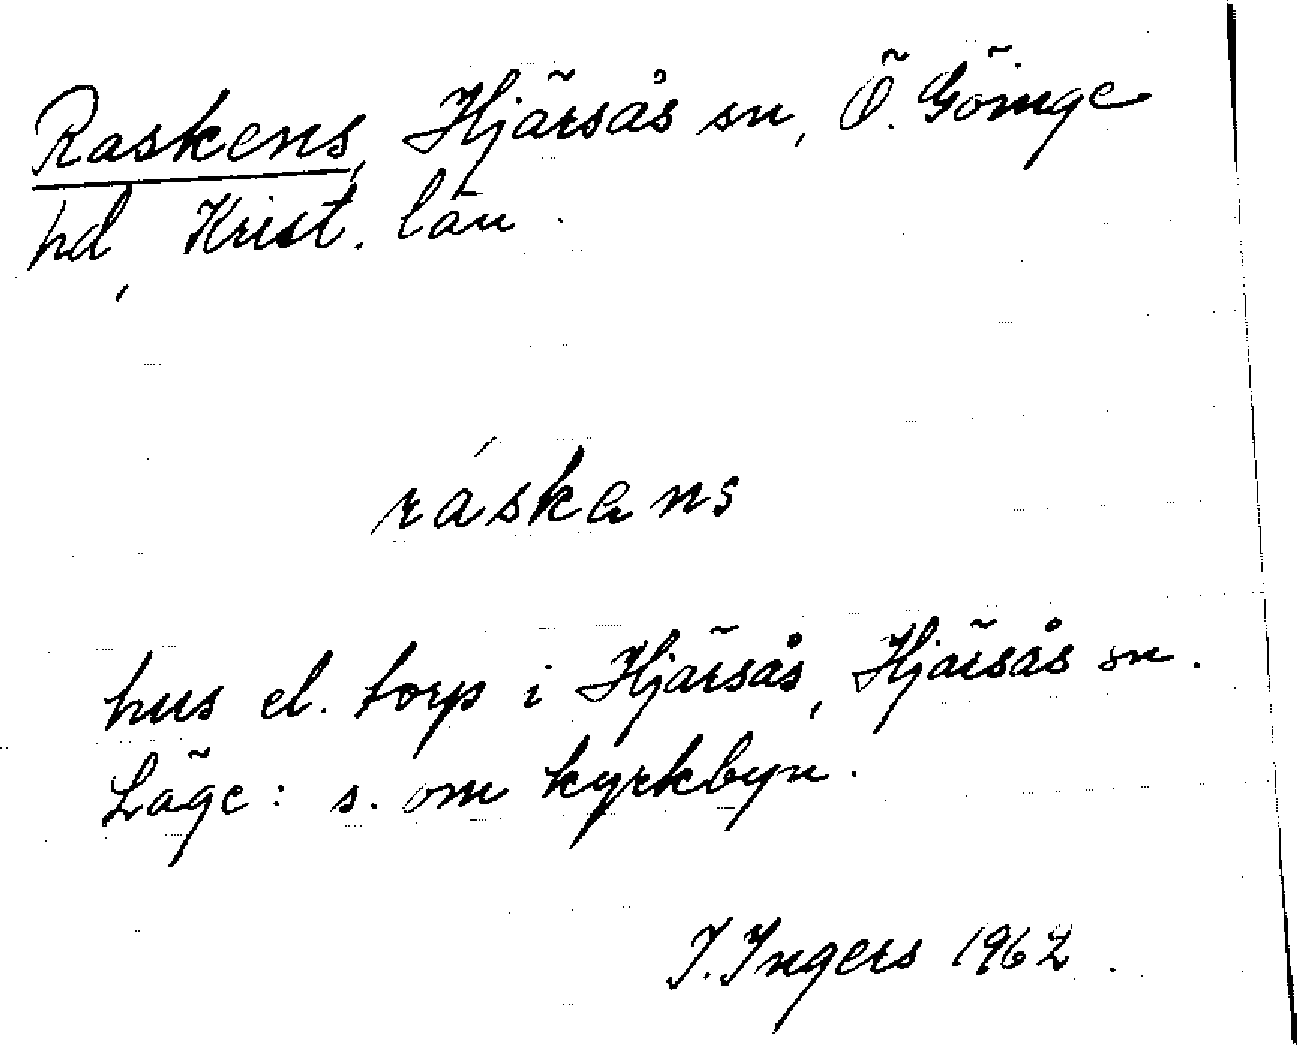 Raskens, Hjärsås sn, Ö. Göinge
hd, Krist. län.
ráskans
hus el. torp i Hjärsås, Hjärsås sn.
Läge: s. om kyrkbyn.
I. Ingers 1962.